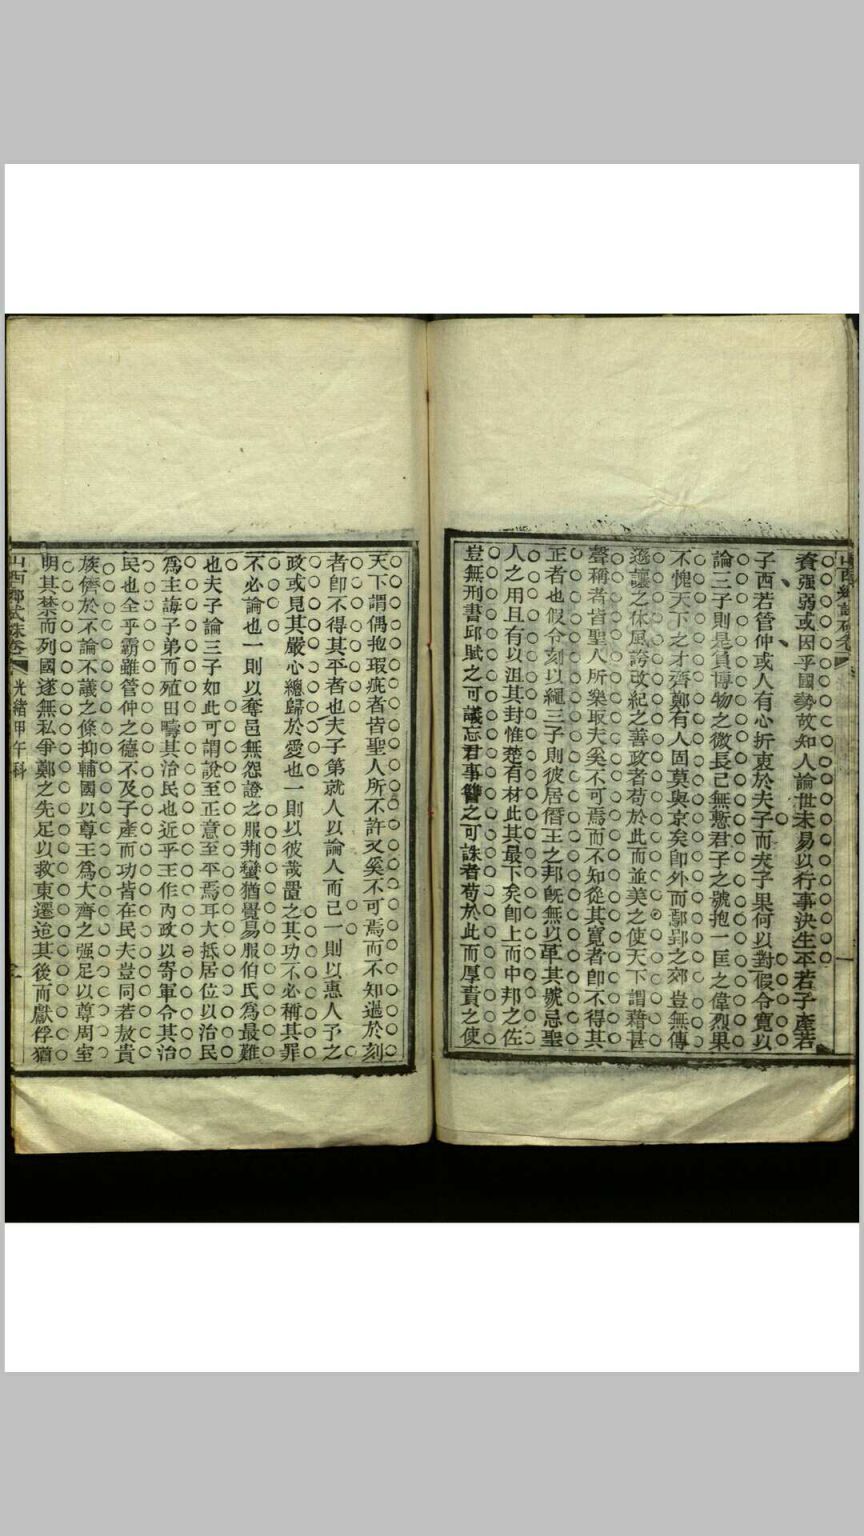 資强弱或因乎國勢故知人論世未易以行事決生平若子產若
子西若管仲或人有心折衷於夫子而夫子果何以對假令寬以
論三子則是負博物之微長已無慙君子之號抱一匡之偉烈果
不愧天下之才齊鄭有人固莫與京矣卽外而鄢郢之郊豈無傳
遜讓之休風誇改紀之善政者苟於此而並美之使天下謂藉甚
聲稱者皆聖人所樂取夫奚不可焉而不知從其寬者卽不得其
正者也假令刻以繩三子則彼居僭王之邦旣無以革其號忌聖
人之用且有以沮其封惟楚有材此其最下矣卽上而中邦之佐
豈無刑書邱賦之可議忘君事讐之可誅者苟於此而厚責之使
天下謂偶抱瑕疵者皆聖人所不許又奚不可焉而不知過於刻
者卽不得其平者也夫子第就人以論人而已一則以惠人予之
政或見其嚴心總歸於愛也一則以彼哉置之其功不必稱其罪
不必論也一則以奪邑無怨證之服荆蠻猶覺易服伯氏爲最難
也夫子論三子如此可謂說至正意至平焉耳大抵居位以治民
爲主誨子弟而殖田疇其治民也近乎王作內政以寄軍令其治
民也全乎霸雖管仲之德不及子產而功皆在民夫豈同若敖貴
族儕於不論不議之條抑輔國以尊王爲大齊之强足以尊周室
明其禁而列國遂無私爭鄭之先足以救東遷追其後而獻俘猶
山西鄕試硃卷 光緒甲午科